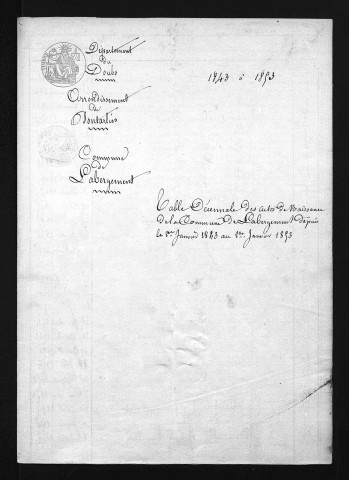 Département
du
Doubs
1843 à 1853
Arrondissement
de
Pontarlier
Commune
de
Labergement
Table Décennale des actes de Naissance
de la Commune de Labergement depuis
le 1er Janvier 1843 au 1er Janvier 1853